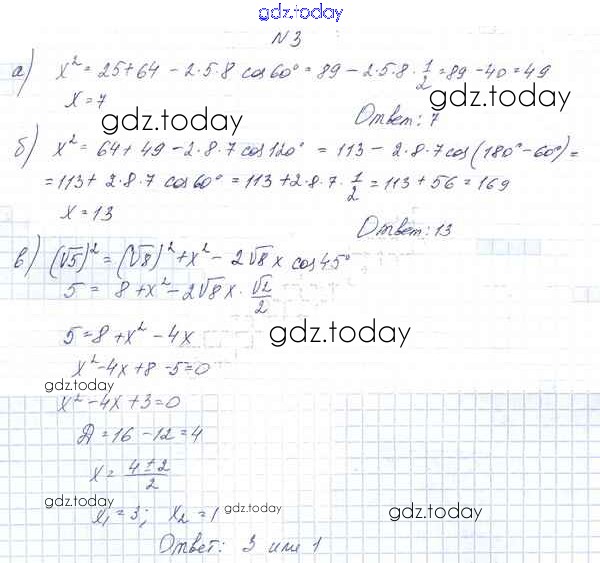 gdz.today
№3
а) x² = 25 + 64 − 2·5·8 cos 60° = 89 − 2·5·8·1/2 = 89 − 40 = 49
x = 7
Ответ: 7
gdz.today
gdz.today
б) x² = 64 + 49 − 2·8·7 cos 120° = 113 − 2·8·7 cos(180° − 60°) =
= 113 + 2·8·7 cos 60° = 113 + 2·8·7·1/2 = 113 + 56 = 169
x = 13
gdz.today
gdz.today
Ответ: 13
в) (√5)² = (√8)² + x² − 2√8 x cos 45°
5 = 8 + x² − 2√8 x · √2/2
5 = 8 + x² − 4x
gdz.today
x² − 4x + 8 − 5 = 0
gdz.today
x² − 4x + 3 = 0
gdz.today
Д = 16 − 12 = 4
x = (4 ± 2)/2
gdz.today
x₁ = 3; x₂ = 1
gdz.today
gdz.today
Ответ: 3 или 1